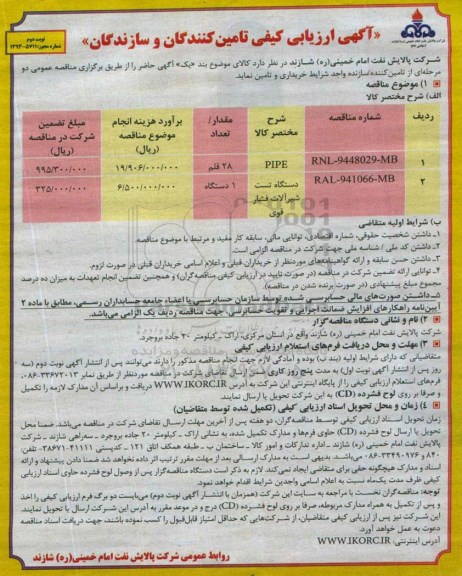 شرکت پالایش نفت امام خمینی(ره)
نوبت دوم
شماره مجوز: ۱۳۹۴-۵۷۱۱
«آگهی ارزیابی کیفی تامین‌کنندگان و سازندگان»
شرکت پالایش نفت امام خمینی(ره) شازند در نظر دارد کالای موضوع بند «یک» آگهی حاضر را از طریق برگزاری مناقصه عمومی دو
مرحله‌ای از تامین‌کننده/سازنده واجد شرایط خریداری و تامین نماید.
۱) موضوع مناقصه
الف) شرح مختصر کالا
ردیف شماره مناقصه شرح مختصر کالا مقدار/ تعداد برآورد هزینه انجام موضوع مناقصه (ریال) مبلغ تضمین شرکت در مناقصه (ریال)
۱ RNL-9448029-MB PIPE ۲۸ قلم ۱۹/۹۰۶/۰۰۰/۰۰۰ ۹۹۵/۳۰۰/۰۰۰
۲ RAL-941066-MB دستگاه تست شیرآلات فشار قوی ۱ دستگاه ۶/۵۰۰/۰۰۰/۰۰۰ ۳۲۵/۰۰۰/۰۰۰
ب) شرایط اولیه متقاضی
۱ـ داشتن شخصیت حقوقی، شماره اقتصادی، توانایی مالی، سابقه کار مفید و مرتبط با موضوع مناقصه.
۲ـ داشتن کد ملی / شناسه ملی جهت شرکت در مناقصه الزامی است.
۳ـ داشتن حسن سابقه و ارائه گواهینامه‌های موردنظر از خریداران قبلی و اعلام اسامی خریداران قبلی در صورت لزوم.
۴ـ توانایی ارائه تضمین شرکت در مناقصه (در صورت تایید در ارزیابی کیفی مناقصه‌گران) و همچنین تضمین انجام تعهدات به میزان ده درصد
مجموع مبلغ پیشنهادی (در صورت برنده شدن در مناقصه)
۵ـ داشتن صورت‌های مالی حسابرسی شده توسط سازمان حسابرسی یا اعضاء جامعه حسابداران رسمی، مطابق با ماده ۲
آیین‌نامه راهکارهای افزایش ضمانت اجرایی و تقویت حسابرسی جهت مناقصه ردیف یک الزامی می‌باشد.
۲) نام و نشانی دستگاه مناقصه‌گزار
شرکت پالایش نفت امام خمینی (ره) شازند واقع در استان مرکزی، اراک ـ کیلومتر ۲۰ جاده بروجرد.
۳) مهلت و محل دریافت فرم‌های استعلام ارزیابی کیفی
متقاضیانی که دارای شرایط اولیه (بند ب) بوده و آمادگی لازم جهت انجام مناقصه مذکور را دارند می‌توانند پس از انتشار آگهی نوبت دوم (سه
روز پس از انتشار آگهی نوبت اول) به مدت پنج روز کاری ضمن ارسال تقاضای شرکت در مناقصه موردنظر از طریق نمابر ۳۳۶۷۲۰۱۳-۰۸۶
فرم‌های استعلام ارزیابی کیفی را از پایگاه اینترنتی این شرکت به آدرس WWW.IKORC.IR دریافت و براساس آن مدارک لازمه را تکمیل
و صرفا بر روی لوح فشرده (CD) به این شرکت تحویل یا ارسال نمایند.
۴) زمان و محل تحویل اسناد ارزیابی کیفی (تکمیل شده توسط متقاضیان)
زمان تحویل اسناد ارزیابی کیفی توسط مناقصه‌گران، دو هفته پس از آخرین مهلت ارسال تقاضای شرکت در مناقصه می‌باشد. ضمنا محل
تحویل یا ارسال لوح فشرده (CD) حاوی فرم‌ها و مدارک تکمیل شده، به نشانی اراک ـ کیلومتر ۲۰ جاده بروجرد ـ سه‌راهی شازند ـ شرکت
پالایش نفت امام خمینی (ره) شازند ـ اداره تدارکات و امور کالا ـ ساختمان ب ـ طبقه همکف اتاق ۱۲۱ ـ کدپستی ۴۱۱۱۱-۳۸۶۷۱ ـ تلفن:
۸۴۰ و ۳۳۴۹۰۱۷۶-۰۸۶ می‌باشد. بدیهی است به مدارک ارسالی بعد از مهلت مقرر ترتیب اثر داده نخواهد شد ضمنا دادن پیشنهاد و ارائه
اسناد و مدارک هیچگونه حقی برای متقاضی ایجاد نمی‌کند. لازم به ذکر است دستگاه مناقصه‌گزار پس از وصول لوح فشرده حاوی اسناد ارزیابی
کیفی ظرف مدت یک‌ماه نسبت به اعلام اسامی واجدین شرایط اقدام خواهد نمود.
توجه: مناقصه‌گران نخست با مراجعه به سایت این شرکت (همزمان با انتشار آگهی نوبت دوم) می‌بایست دو برگ فرم ارزیابی کیفی را اخذ
و پس از تکمیل به همراه مدارک مربوطه، صرفا بر روی لوح فشرده (CD) درج و در موعد مقرر به آدرس این شرکت ارسال یا تحویل نمایند.
این شرکت نیز پس از ارزیابی کیفی متقاضیان، از شرکت‌هایی که حداقل امتیاز قابل‌قبول را کسب نموده باشند، جهت دریافت اسناد مناقصه
دعوت به عمل خواهد آورد.
آدرس اینترنتی: WWW.IKORC.IR
روابط عمومی شرکت پالایش نفت امام خمینی(ره) شازند